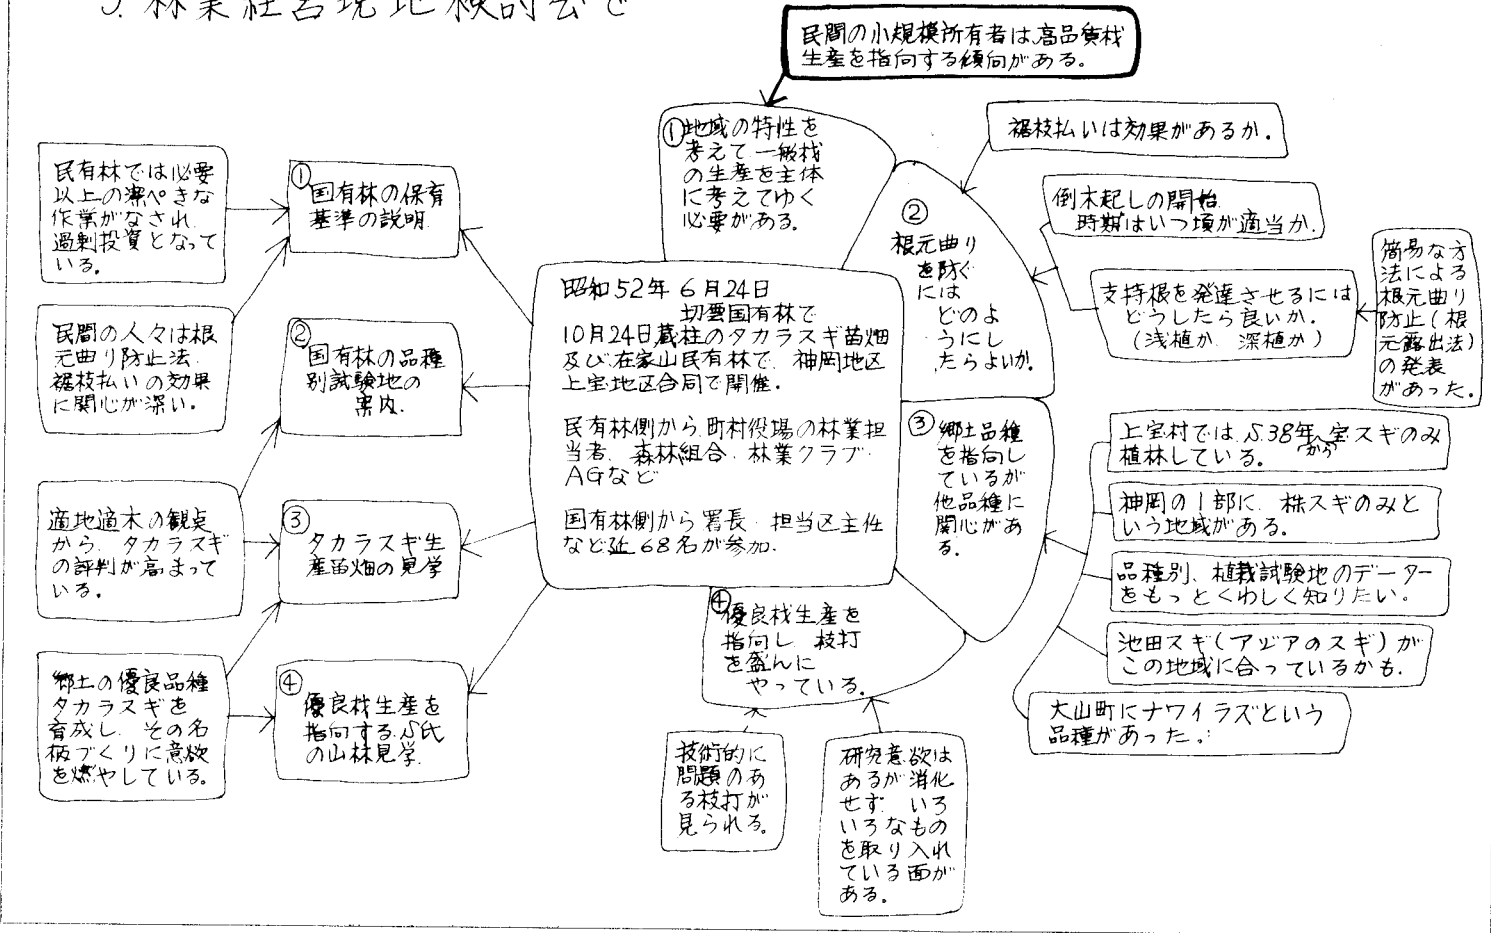 5. 林業経営現地検討会で
民間の小規模所有者は、高品質材
生産を指向する傾向がある。
民有林では必要
以上の潔ぺきな
作業がなされ
過剰投資となって
いる。
民間の人々は根
元曲り防止法.
裾枝払いの効果
に関心が深い。
適地適木の観点
から、タカラスギ
の評判が高まって
いる。
郷土の優良品種
タカラスギを
育成し、その名
柄づくりに意欲
を燃やしている。
①
国有林の保育
基準の説明.
②
国有林の品種
別試験地の
案内.
③
タカラスギ生
産苗畑の見学
④
優良材生産を
指向するS氏
の山林見学.
昭和52年6月24日
切雲国有林で
10月24日蔵柱のタカラスギ苗畑
及び在家山民有林で、神岡地区
上宝地区合同で開催.
民有林側から町村役場の林業担
当者. 森林組合. 林業クラブ.
AGなど
国有林側から署長. 担当区主任
など延68名が参加.
①地域の特性を
考えて一般材
の生産を主体
に考えてゆく
必要がある。
②
根元曲り
を防ぐ
には
どのよ
うにし
たらよいか.
③ 郷土品種
を指向し
ているが
他品種に
関心があ
る。
④
優良材生産を
指向し、枝打
を盛んに
やっている。
裾枝払いは効果があるか.
倒木起しの開始
時期はいつ頃が適当か.
支持根を発達させるには
どうしたら良いか.
(浅植か 深植か)
簡易な方
法による
根元曲り
防止(根
元露出法)
の発表
があった。
上宝村ではS.38年から宝スギのみ
植林している。
神岡の1部に、株スギのみと
いう地域がある。
品種別、植栽試験地のデーター
をもっとくわしく知りたい。
池田スギ(アジアのスギ)が
この地域に合っているかも.
大山町にナワイラズという
品種があった.
技術的に
問題のあ
る枝打が
見られる。
研究意欲は
あるが消化
せず、いろ
いろなもの
を取り入れ
ている面が
ある。